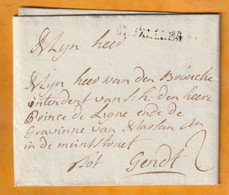 BRUXELLES
Mÿn heer
Mÿn heer van den
intendent van S: h: den heere
Prince de Ligne ende de
Gravinne van
in de munt straet
tot Gendt